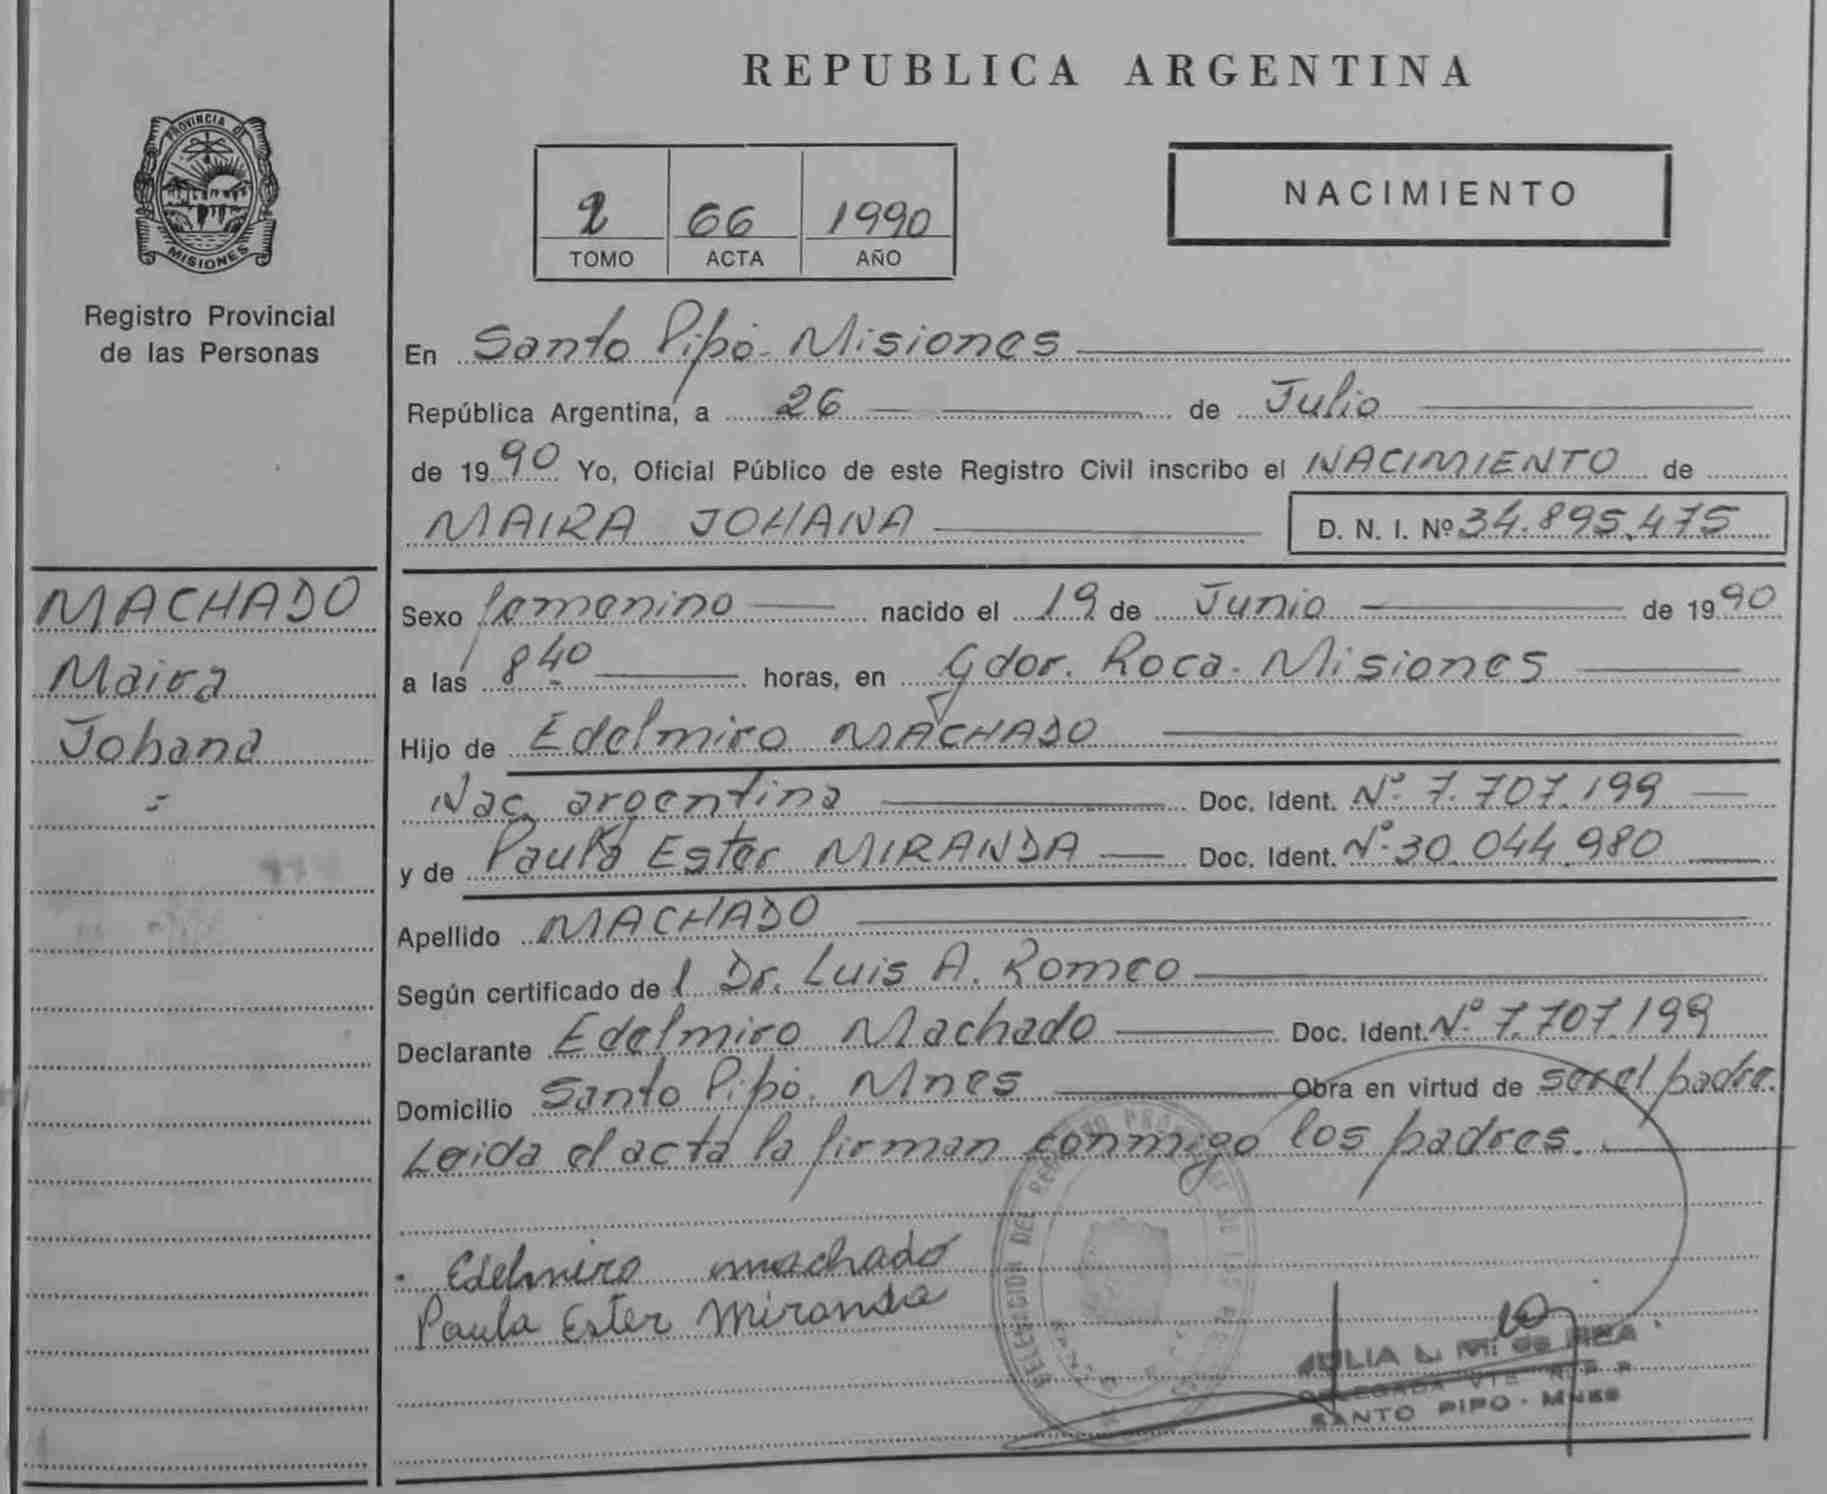 REPUBLICA ARGENTINA
PROVINCIA DE
MISIONES
Registro Provincial
de las Personas
2 66 1990
TOMO ACTA AÑO
NACIMIENTO
En Santo Pipó - Misiones
República Argentina, a 26 de Julio
de 1990 Yo, Oficial Público de este Registro Civil inscribo el NACIMIENTO de
MAIRA JOHANA D. N. I. Nº 34.895.475
MACHADO
Maira
Johana
Sexo femenino nacido el 19 de Junio de 1990
a las 8 40 horas, en Gdor. Roca - Misiones
Hijo de Edelmiro MACHADO
Nac. argentina Doc. Ident. Nº 7.707.199
y de Paula Ester MIRANDA Doc. Ident. Nº 30.044.980
Apellido MACHADO
Según certificado del Dr. Luis A. Romeo
Declarante Edelmiro Machado Doc. Ident. Nº 7.707.199
Domicilio Santo Pipó. Mnes Obra en virtud de ser el padre.
Leida el acta la firman conmigo los padres.
Edelmiro machado
Paula Ester Miranda
DELEGACION DEL REGISTRO PROVINCIAL DE LAS
JULIA
DELEGADA
SANTO PIPO - MNES